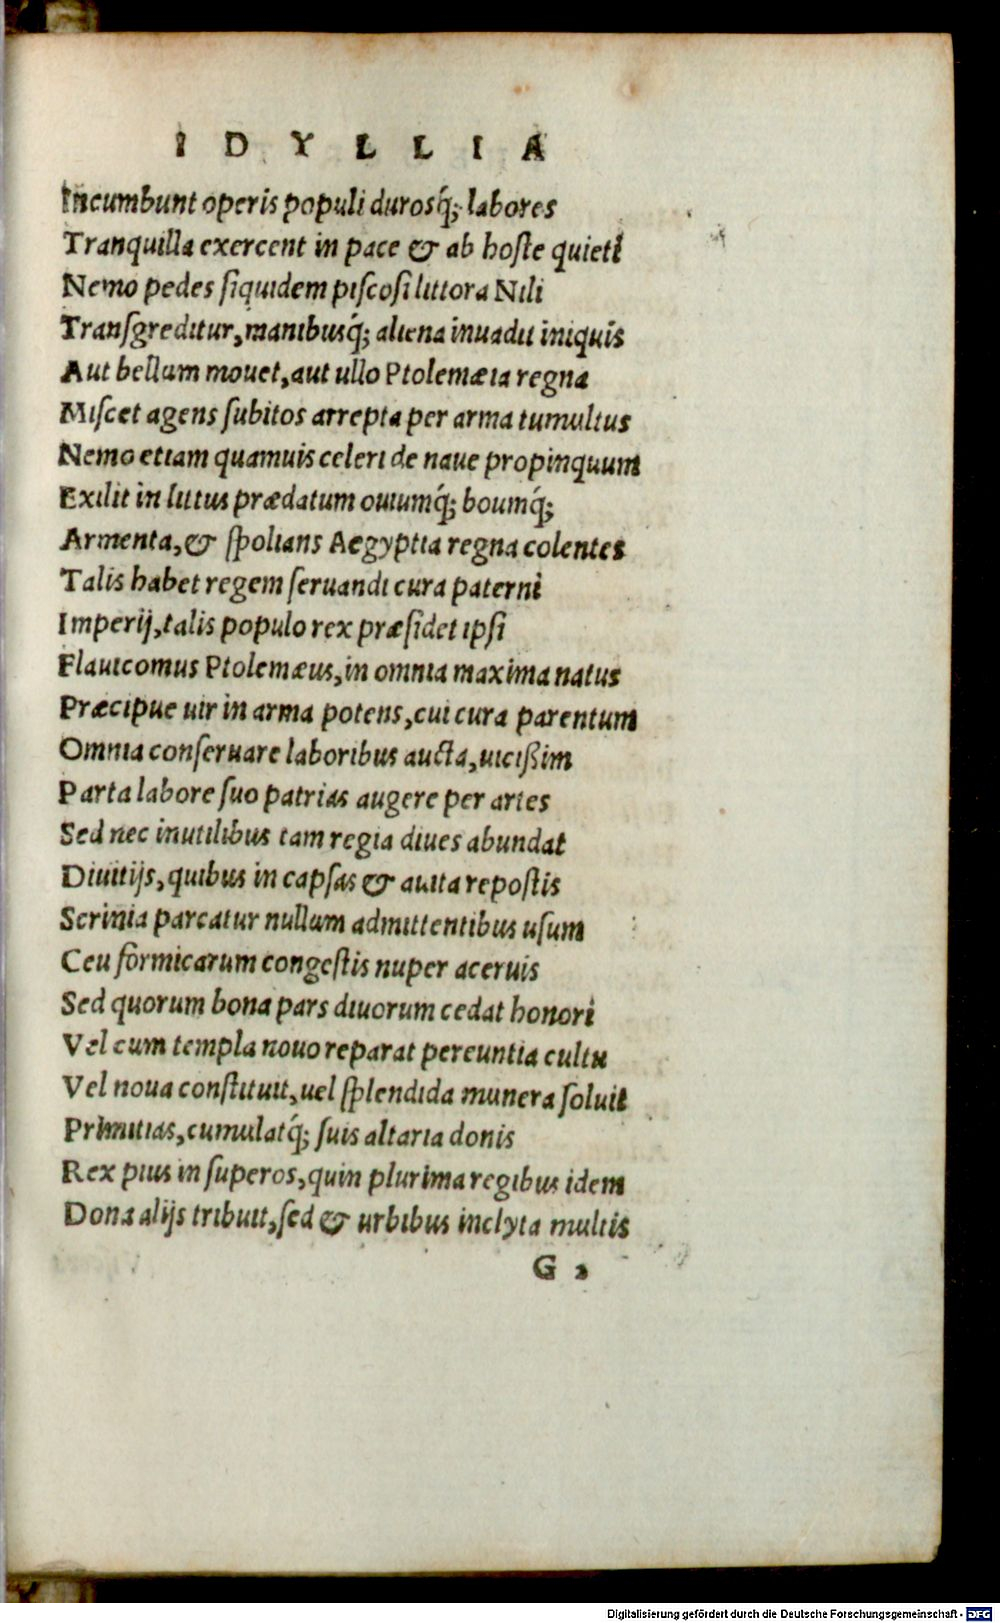 IDYLLIA
Incumbunt operis populi durosq́; labores
Tranquilla exercent in pace & ab hoste quieti
Nemo pedes siquidem piscosi littora Nili
Transgreditur, manibusq́; aliena inuadit iniquis
Aut bellum mouet, aut ullo Ptolemæia regna
Miscet agens subitos arrepta per arma tumultus
Nemo etiam quamuis celeri de naue propinquum
Exilit in littus prædatum ouiumq́; boumq́;
Armenta, & spolians Aegyptia regna colentes
Talis habet regem seruandi cura paterni
Imperij, talis populo rex præsidet ipsi
Flauicomus Ptolemæus, in omnia maxima natus
Præcipue uir in arma potens, cui cura parentum
Omnia conseruare laboribus aucta, uicißim
Parta labore suo patrias augere per artes
Sed nec inutilibus tam regia diues abundat
Diuitijs, quibus in capsas & auita repostis
Scrinia parcatur nullum admittentibus usum
Ceu formicarum congestis nuper aceruis
Sed quorum bona pars diuorum cedat honori
Vel cum templa nouo reparat pereuntia cultu
Vel noua constituit, uel splendida munera soluit
Primitias, cumulatq́; suis altaria donis
Rex pius in superos, quin plurima regibus idem
Dona alijs tribuit, sed & urbibus inclyta multis
G 2
Digitalisierung gefördert durch die Deutsche Forschungsgemeinschaft - DFG